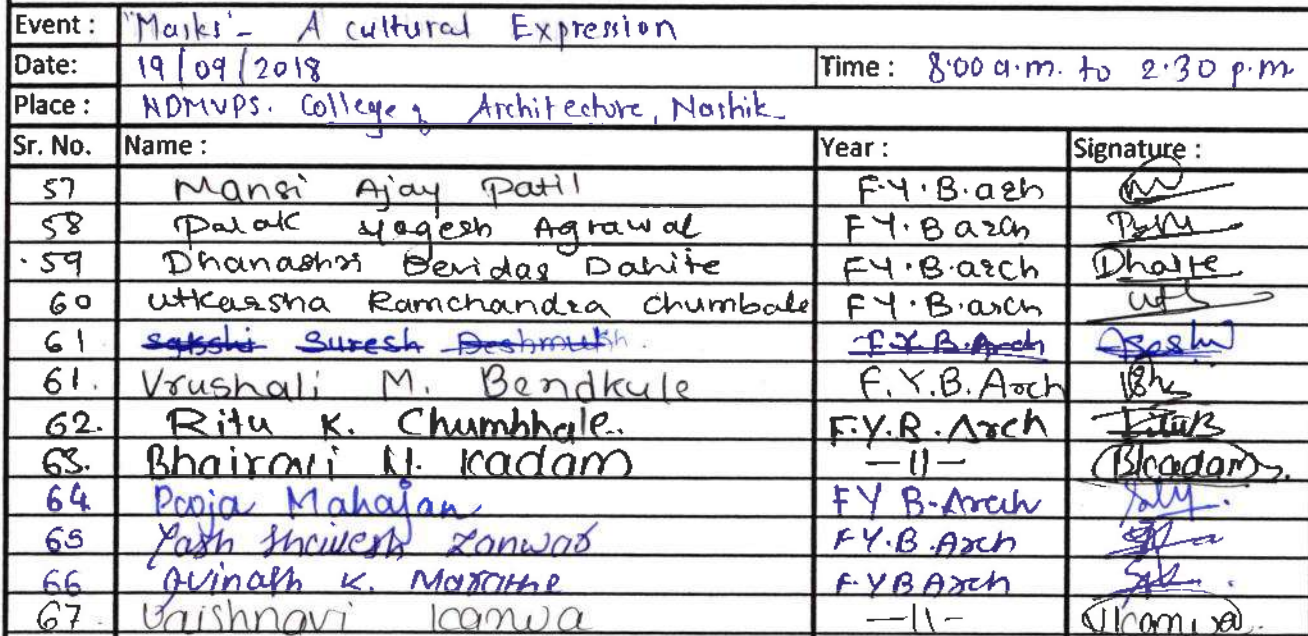 Event : "Masks'- A cultural Expression
Date: 19/09/2018 Time : 8:00 a.m. to 2.30 p.m
Place : NDMVPS. College of Architecture, Nashik
Sr. No. Name : Year : Signature :
57 Mansi Ajay Patil F.Y.B.arh
58 Palak Yogesh Agrawal FY.B arch
59 Dhanashri Devidas Dahite FY.B.arch Dhaite
60 Utkarsha Ramchandra Chumbale FY.B.arch
61 Sakshi Suresh Deshmukh. F.Y.B.Arch
61. Vrushali M. Bendkule F.Y.B.Arch
62. Ritu K. Chumbhale. F.Y.B.Arch
63. Bhairavi N. Kadam —11— Bkadam
64 Pooja Mahajan FY B-Arch
65 Yash Zanwar FY.B.Arch
66 Avinash K. Marathe F.YBArch
67. Vaishnavi Kanwa —11— VKanwa.